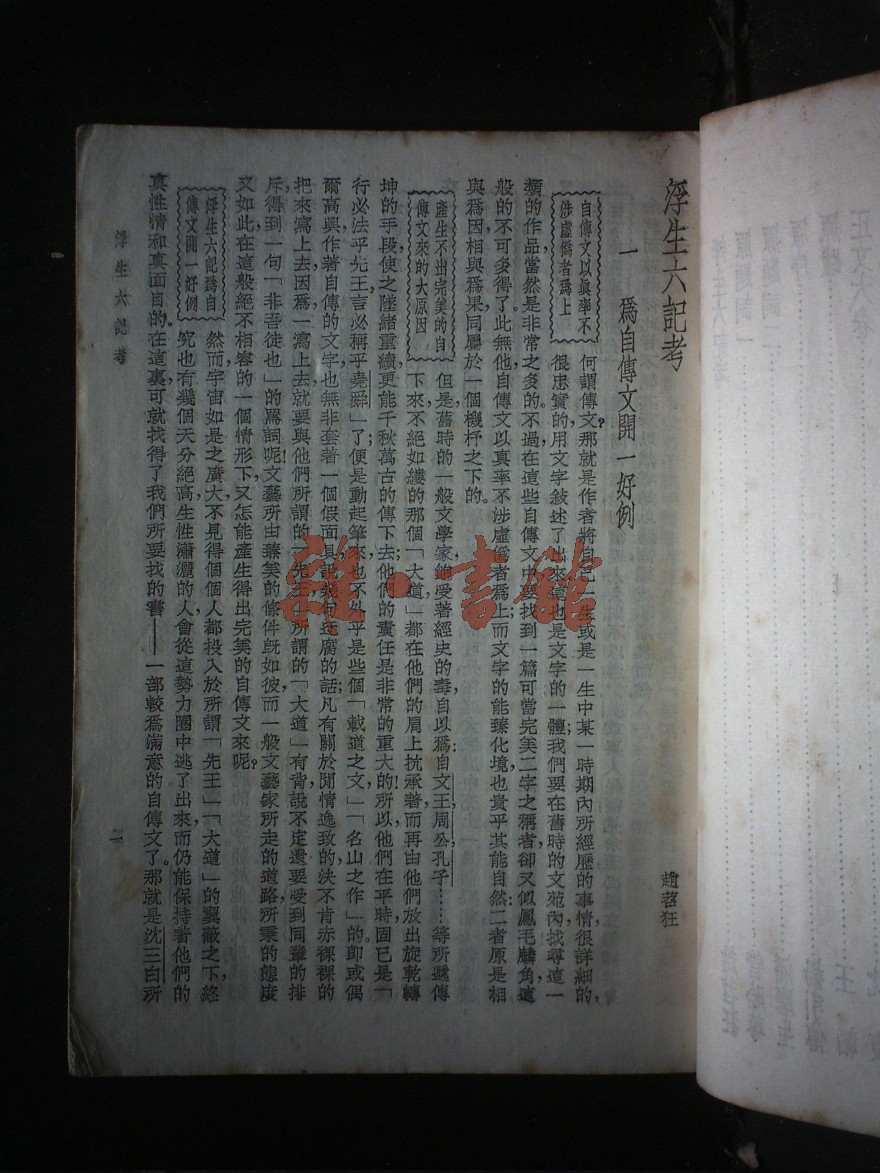 浮生六記考
趙苕狂
一 為自傳文開一好例
自傳文以真率不
涉虛僞者爲上
何謂傳文?那就是作者將自己一生或是一生中某一時期內所經歷的事情,很詳細的,
很忠實的,用文字敘述了出來;這也是文字的一體。我們要在舊時的文苑內找尋這一
類的作品,當然是非常之多的。不過在這些自傳文中,要找到一篇可當完美二字之稱者,卻又似鳳毛麟角,這
般的不可多得了。此無他,自傳文以真率不涉虛僞者爲上;而文字的能臻化境,也貴乎其能自然,二者原是相
與爲因,相與爲果,同屬於一個機杼之下的。
產生不出完美的自
傳文來的大原因
但是,舊時的一般文學家,飽受著經史的毒,自以爲自文王周公孔子……等所遞傳
下來,不絕如縷的那個「大道」,都在他們的肩上抗承著;而再由他們放出旋乾轉
坤的手段,使之陸緒重續,更能千秋萬古的傳下去;他們的責任是非常的重大的!所以,他們在平時固已是「
行必法乎先王,言必稱乎堯舜」了;便是動起筆來,也不外乎是些個「載道之文」「名山之作」的。卽或偶
爾高興,作著自傳的文字,也無非套著一個假面具,說幾句迂腐的話;凡有關於閒情逸致的,決不肯赤裸裸的
把來寫上去。因爲,一寫上去,就要與他們所謂的「先王」,所謂的「大道」有背,說不定還要受到同輩的排
斥,得到一句「非吾徒也」的罵詞呢!文藝所由臻美的條件旣如彼,而一般文藝家所走的道路,所秉的態度
又如此,在這般絕不相容的一個情形下,又怎能產生得出完美的自傳文來呢?
浮生六記爲自
傳文開一好例
然而,宇宙如是之廣大,不見得個個人都投入於所謂「先王」「大道」的翼蔽之下,終
究也有幾個天分絕高,生性瀟灑的人,會從這勢力圈中逃了出來,而仍能保持著他們的
真性情和真面目的。在這裏,可就找得了我們所要找的書——一部較爲滿意的自傳文了。那就是沈三白所
浮生六記考
一
雜·書館